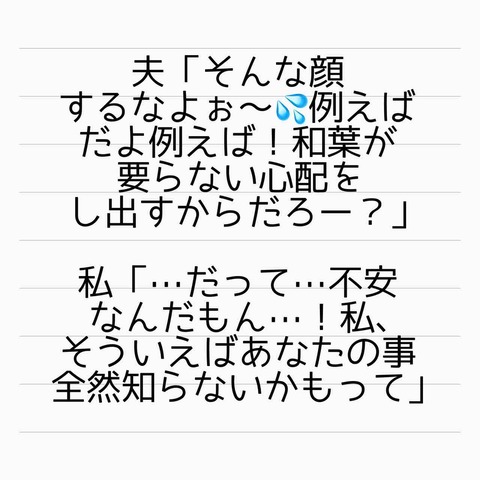 夫「そんな顔
するなよぉ〜💦例えば
だよ例えば！和葉が
要らない心配を
し出すからだろー？」
私「…だって…不安
なんだもん…！私、
そういえばあなたの事
全然知らないかもって」